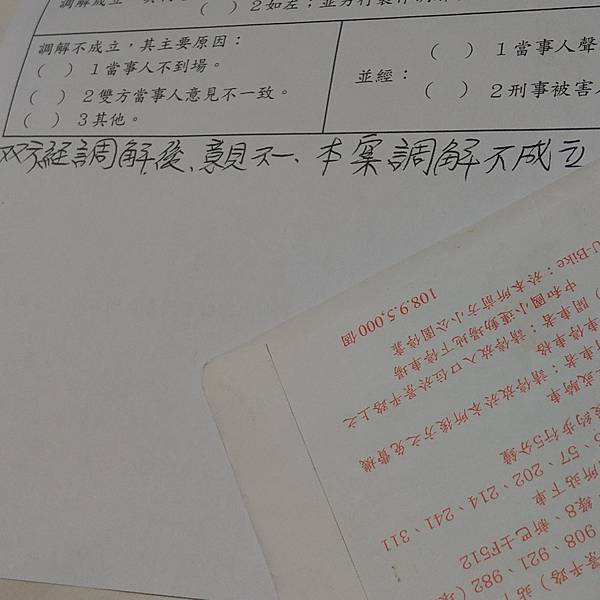 調解成立
(　)２如左；並另行製作調解
調解不成立，其主要原因：
(　)１當事人不到場。
(　)２雙方當事人意見不一致。
(　)３其他。
並經：
(　)１當事人聲
(　)２刑事被害人
双方經調解後、意見不一、本案調解不成立
908、921、982
908、綠8、新巴士F512
57、202、214、241、311
步行5分鐘
車者：請停放於本所後方之免費機
車停車格
開車者：請停放入口位於景平路上之
中和國小運動場地下停車場
U-Bike：於本所前方小公園停靠
108.9.5,000個